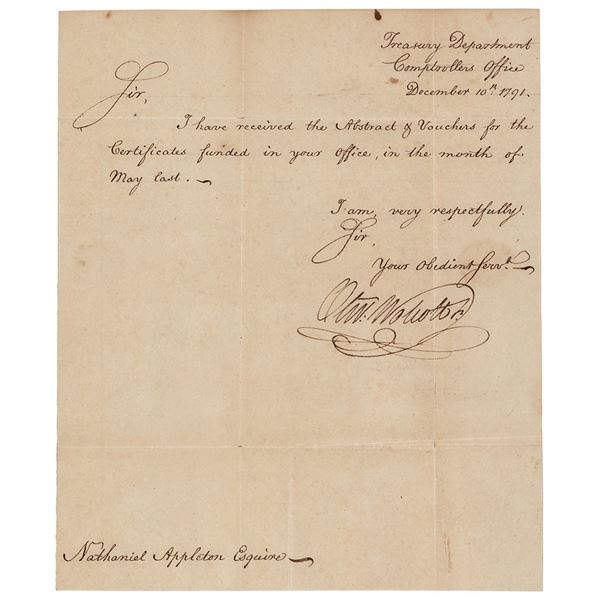 Treasury Department
Comptrollers Office
December 10th. 1791.
Sir,
I have received the Abstract & Vouchers for the
Certificates funded in your Office, in the month of
May last.
I am, very respectfully.
Sir,
Your Obedient Servt.
Olivr. Wolcott Jr
Nathaniel Appleton Esquire